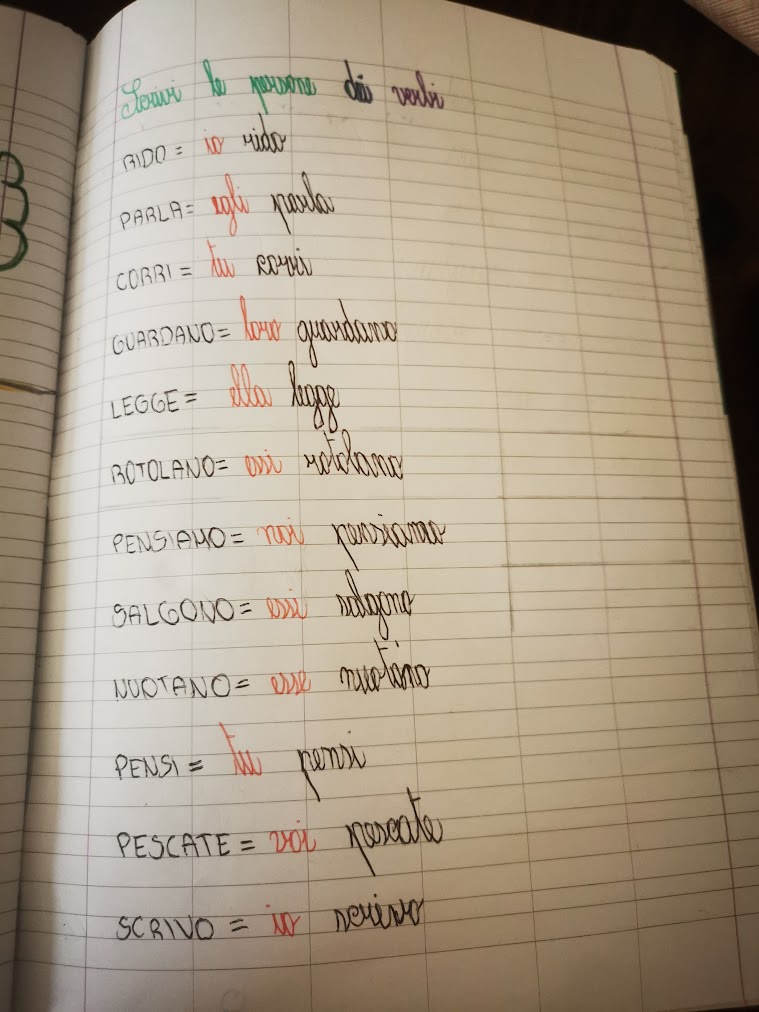 Scrivi le persone dei verbi
RIDO = io rido
PARLA = egli parla
CORRI = tu corri
GUARDANO = loro guardano
LEGGE = ella legge
ROTOLANO = essi rotolano
PENSIAMO = noi pensiamo
SALGONO = essi salgono
NUOTANO = esse nuotano
PENSI = tu pensi
PESCATE = voi pescate
SCRIVO = io scrivo